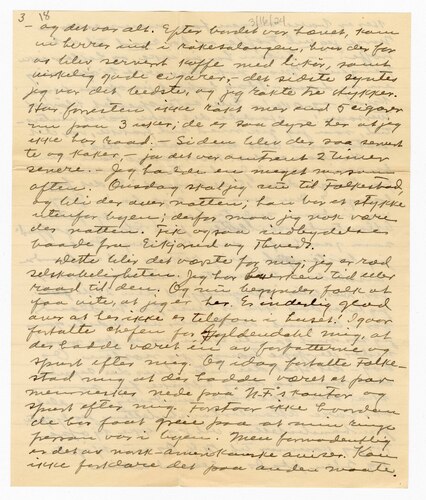 3 18 3/16/24
og det var alt. Efter bordet var hævet, kom
vi herrer ind i røkesalongen, hvor der for
os blev servert kaffe med likør, samt
virkelig gode cigarer, - det sidste syntes
jeg var det bedste, og jeg røkte tre stykker.
Har forresten ikke røkt mer end 5 cigarer
nu paa 3 uker; de er saa dyre her at jeg
ikke har raad. - Siden blev der saa servert
te og kaker, - ja det var omtrent 2 timer
senere. Jeg hadde en meget morsom
aften. Onsdag skal jeg ut til Falkestad,
og bli der over natten; han bor et stykke
utenfor byen; derfor maa jeg nok være
der natten. Fik ogsaa indbydelse
baade fra Eikjand og Thvedt.
Dette blir det værste for mig; jeg er ræd
selskabeligheten. Jeg har hverken tid eller
raad til den. Og nu begynder folk at
faa vite, at jeg er her. Er inderlig glad
over at her ikke er telefon i huset! Igaar
fortalte chefen for Gyldendahl mig, at
der hadde været en av forfatterne og
spurt efter mig. Og idag fortalte Falke-
stad mig at der hadde været et par
mennesker nede paa N.F.'s kontor og
spurt efter mig. Forstaar ikke hvordan
de har faat greie paa at min ringe
person var i byen. Men formodentlig
er det av norsk-amerikanske aviser. Kan
ikke forklare det paa anden maate.